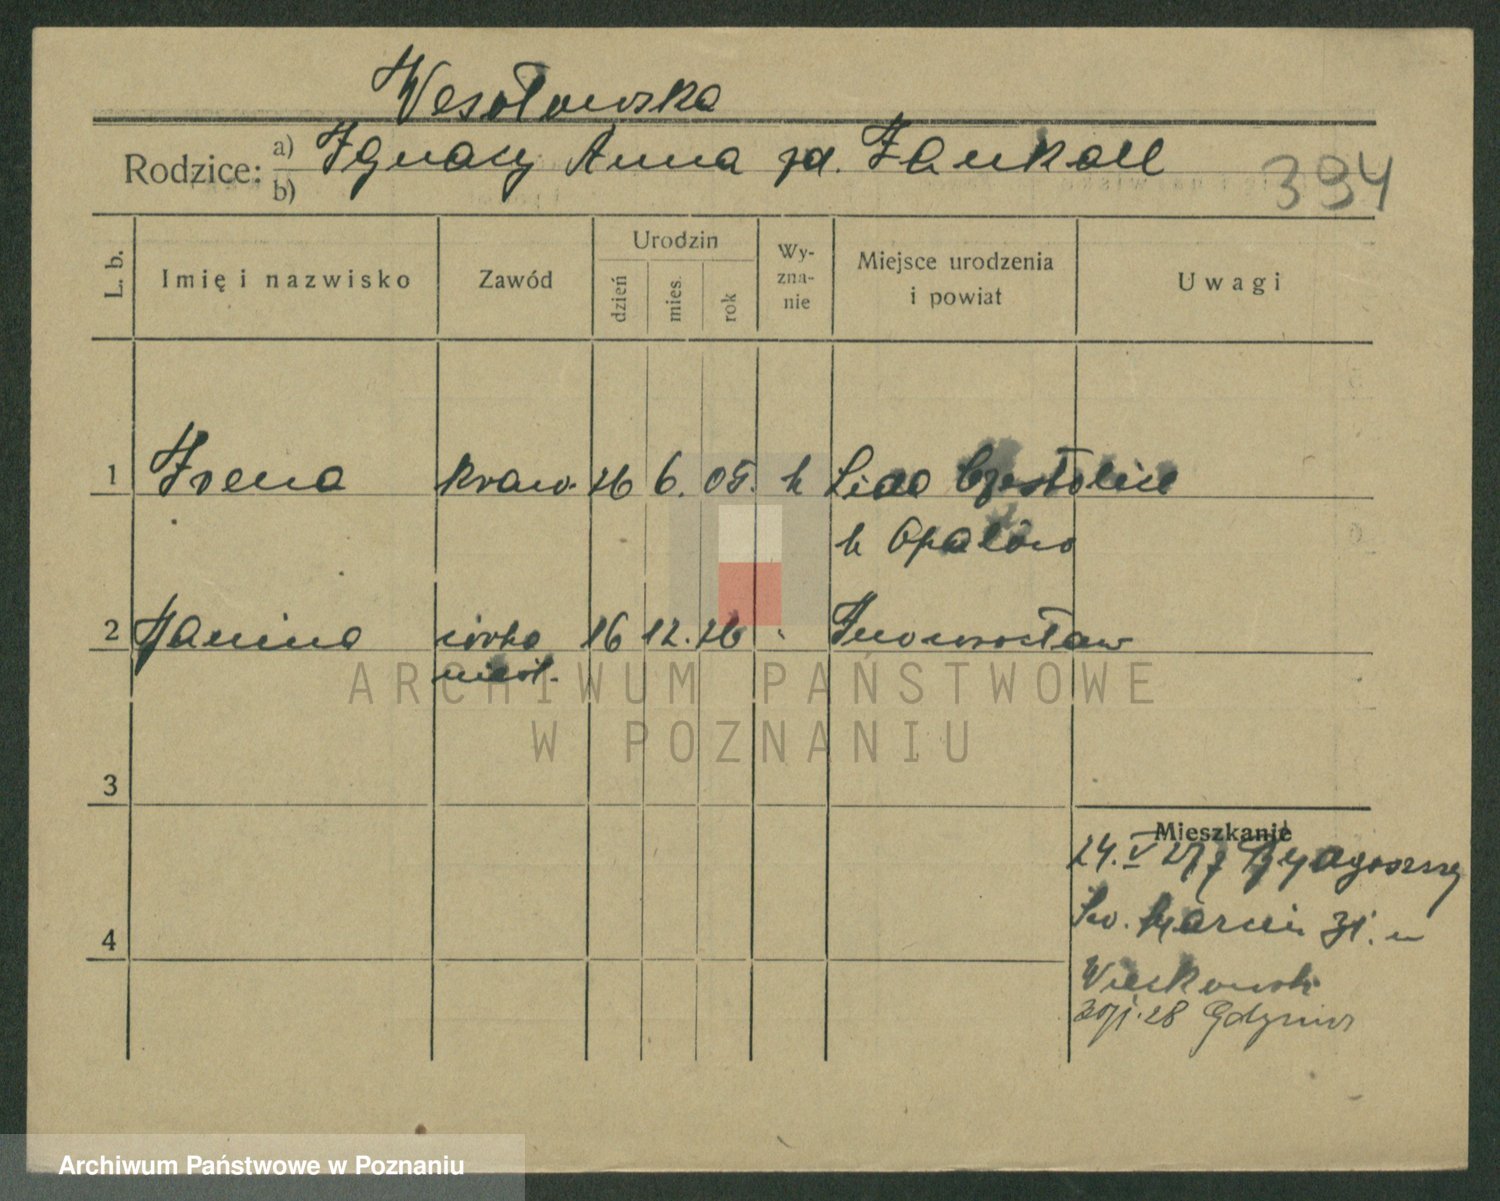 Wesołowska
Rodzice: a) Ignacy Anna zd.
b)
394
L. b.
Imię i nazwisko
Zawód
Urodzin
dzień
mies.
rok
Wy-
zna-
nie
Miejsce urodzenia
i powiat
Uwagi
1 Irena kraw. 26 6. 05. k
k Opatów
2 Janina córka 16 12. 26 Inowrocław
nieśl.
3
4
Mieszkanie
24. V 27 z Bydgoszczy
Św. Marcin 31. u
30/1.28 Gdynia
ARCHIWUM PAŃSTWOWE
W POZNANIU
Archiwum Państwowe w Poznaniu